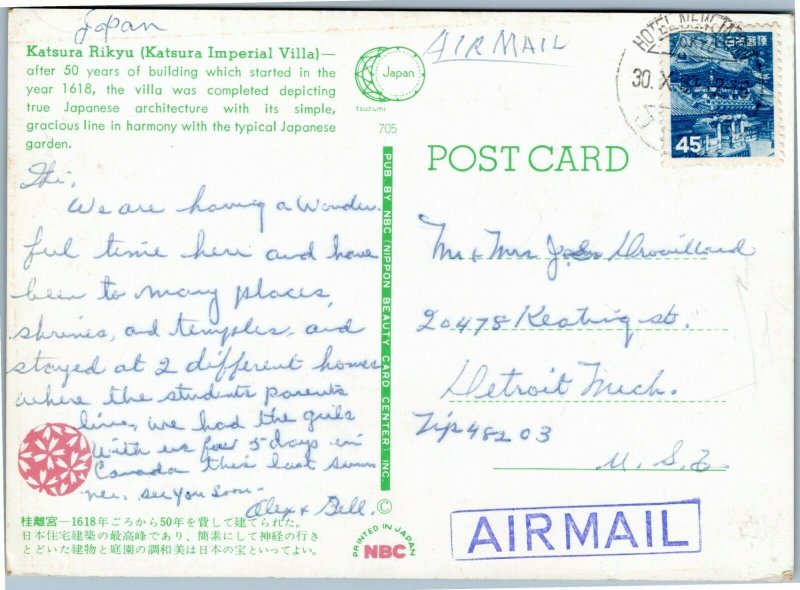 Japan
Katsura Rikyu (Katsura Imperial Villa)—
after 50 years of building which started in the
year 1618, the villa was completed depicting
true Japanese architecture with its simple,
gracious line in harmony with the typical Japanese
garden.
Japan
tsuzumi
705
AIR MAIL
HOTEL NEW
30. X.
日本郵便
45
POST CARD
Hi,
We are having a wonder-
ful time here and have
been to many places,
shrines, and temples and
stayed at 2 different homes
where the students parents
live, we had the girls
with us for 5 days in
Canada this last sum
mer. see you soon.
Alex & Bell.
PUB. BY NBC (NIPPON BEAUTY CARD CENTER) INC.
©
Mr & Mrs Drouillard
20475 Keating st.
Detroit Mich.
Zip 48203
U.S.A.
AIRMAIL
桂離宮－1618年ごろから50年を費して建てられた。
日本住宅建築の最高峰であり、簡素にして神経の行き
とどいた建物と庭園の調和美は日本の宝といってよい。
PRINTED IN JAPAN
NBC